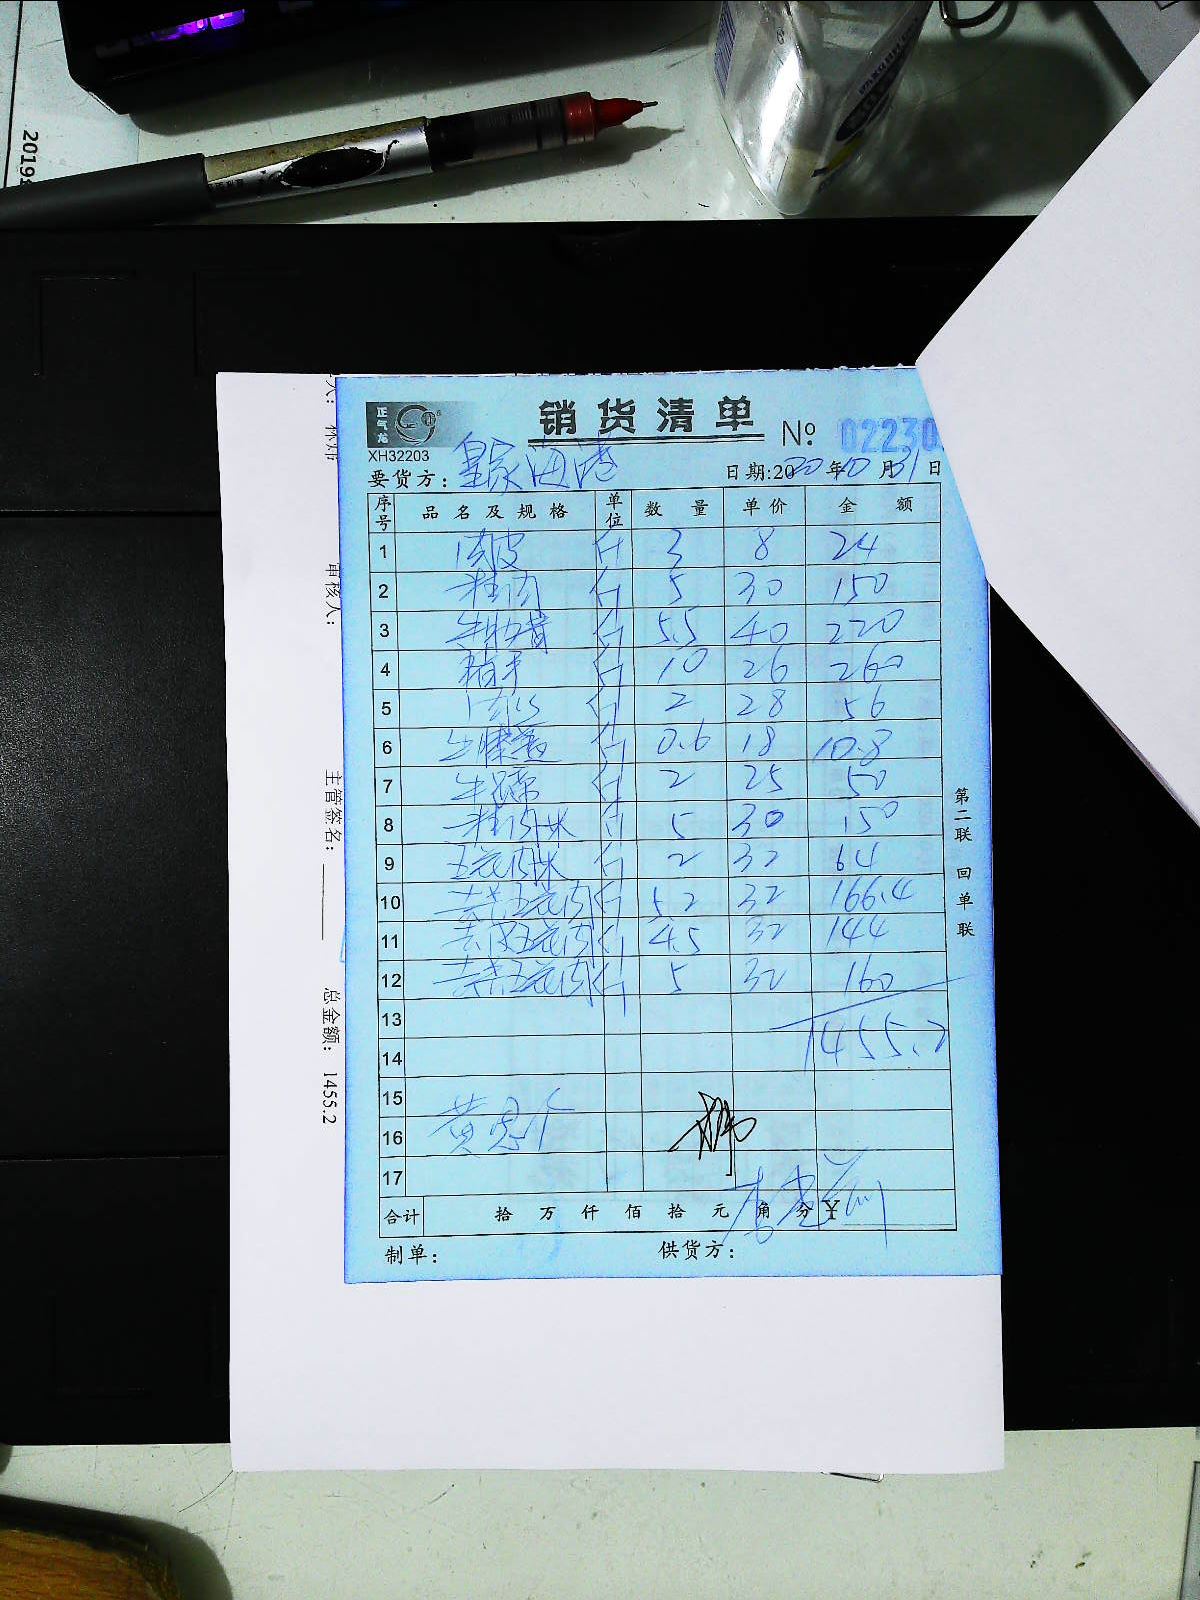 2019
正气龙
销货清单
№ 02230
XH32203
要货方： 皇家海港
日期:2020年10月31日
序号 品名及规格 单位 数量 单价 金额
1 肉皮 斤 3 8 24
2 精肉 斤 5 30 150
3 斤 5.5 40 220
4 斤 10 26 260
5 斤 2 28 56
6 斤 0.6 18 10.8
7 斤 2 25 50
8 精肉 斤 5 30 150
9 五花肉 斤 2 32 64
10 五花肉 斤 5.2 32 166.4
11 去皮五花肉 斤 4.5 32 144
12 五花肉 斤 5 32 160
13
1455.2
14
15
16
17
合计 拾 万 仟 佰 拾 元 角 分 ¥
制单： 供货方：
第二联 回单联
审核人：
主管签名：
总金额： 1455.2